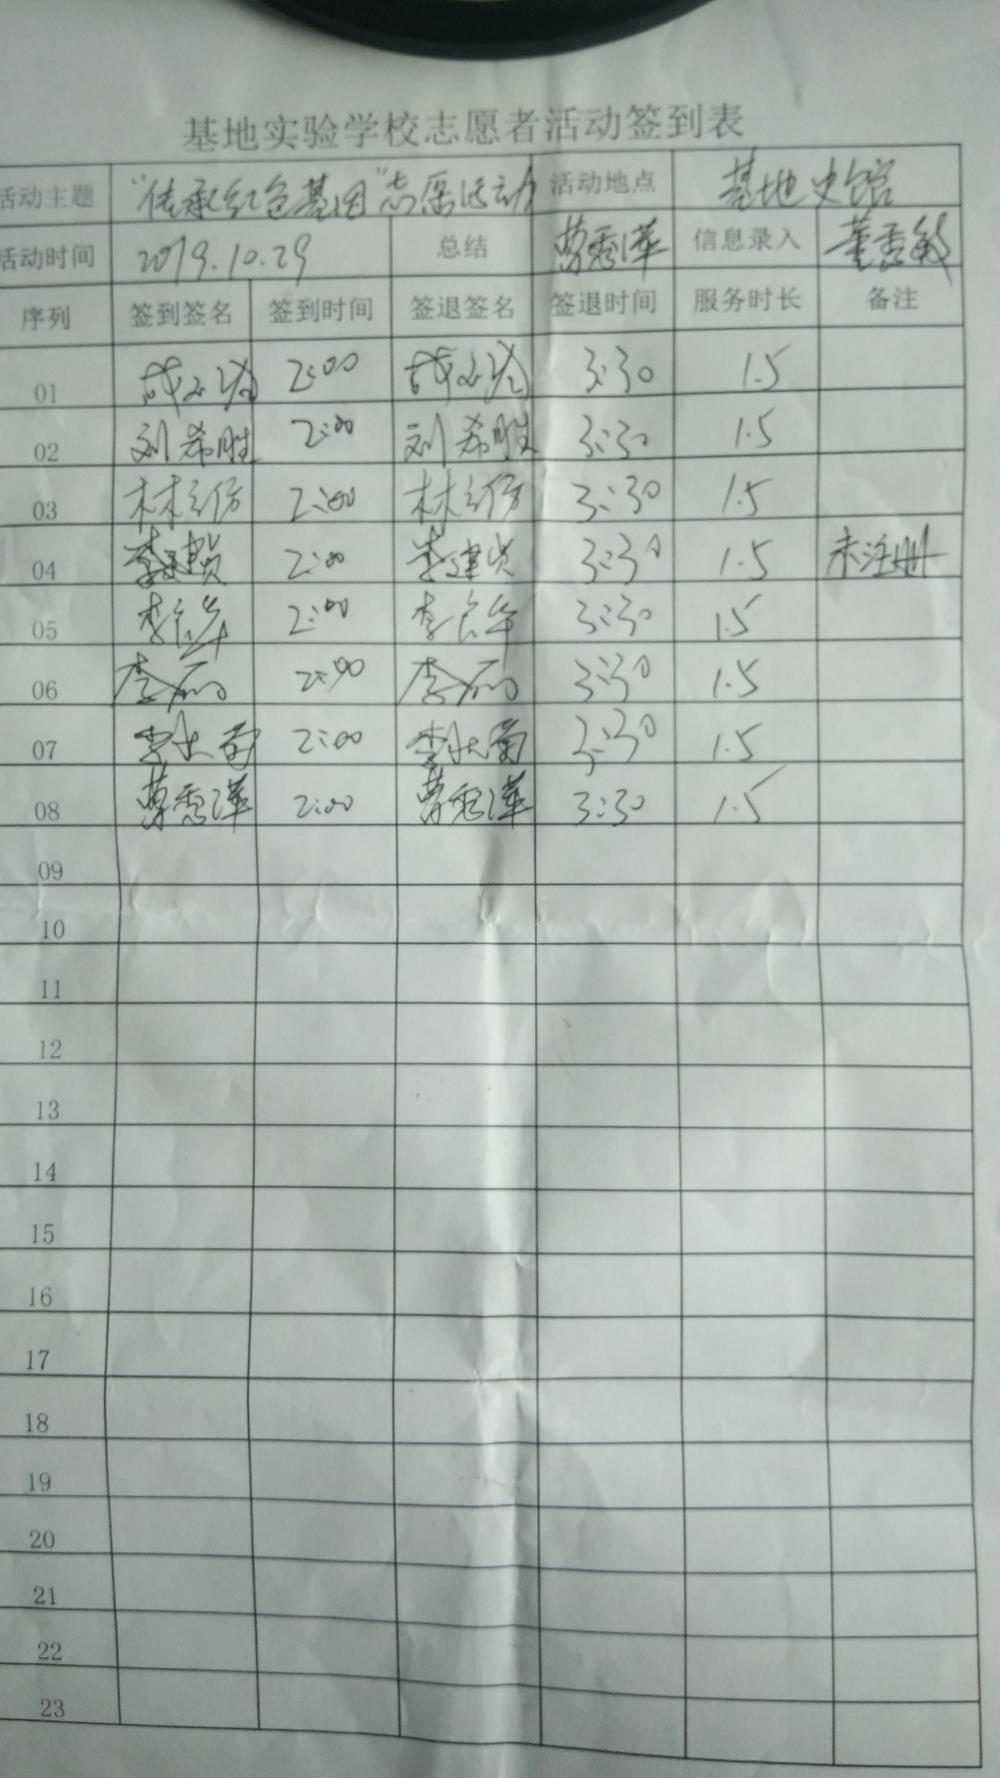 基地实验学校志愿者活动签到表
活动主题 "传承红色基因"志愿活动 活动地点 基地史馆
活动时间 2019.10.29 总结 曹秀萍 信息录入 董秀敏
序列 签到签名 签到时间 签退签名 签退时间 服务时长 备注
01 2:00 3:30 1.5
02 刘希胜 2:00 刘希胜 3:30 1.5
03 2:00 3:30 1.5
04 2:00 3:30 1.5 未注册
05 2:00 3:30 1.5
06 2:00 3:30 1.5
07 2:00 3:30 1.5
08 2:00 3:30 1.5
09
10
11
12
13
14
15
16
17
18
19
20
21
22
23